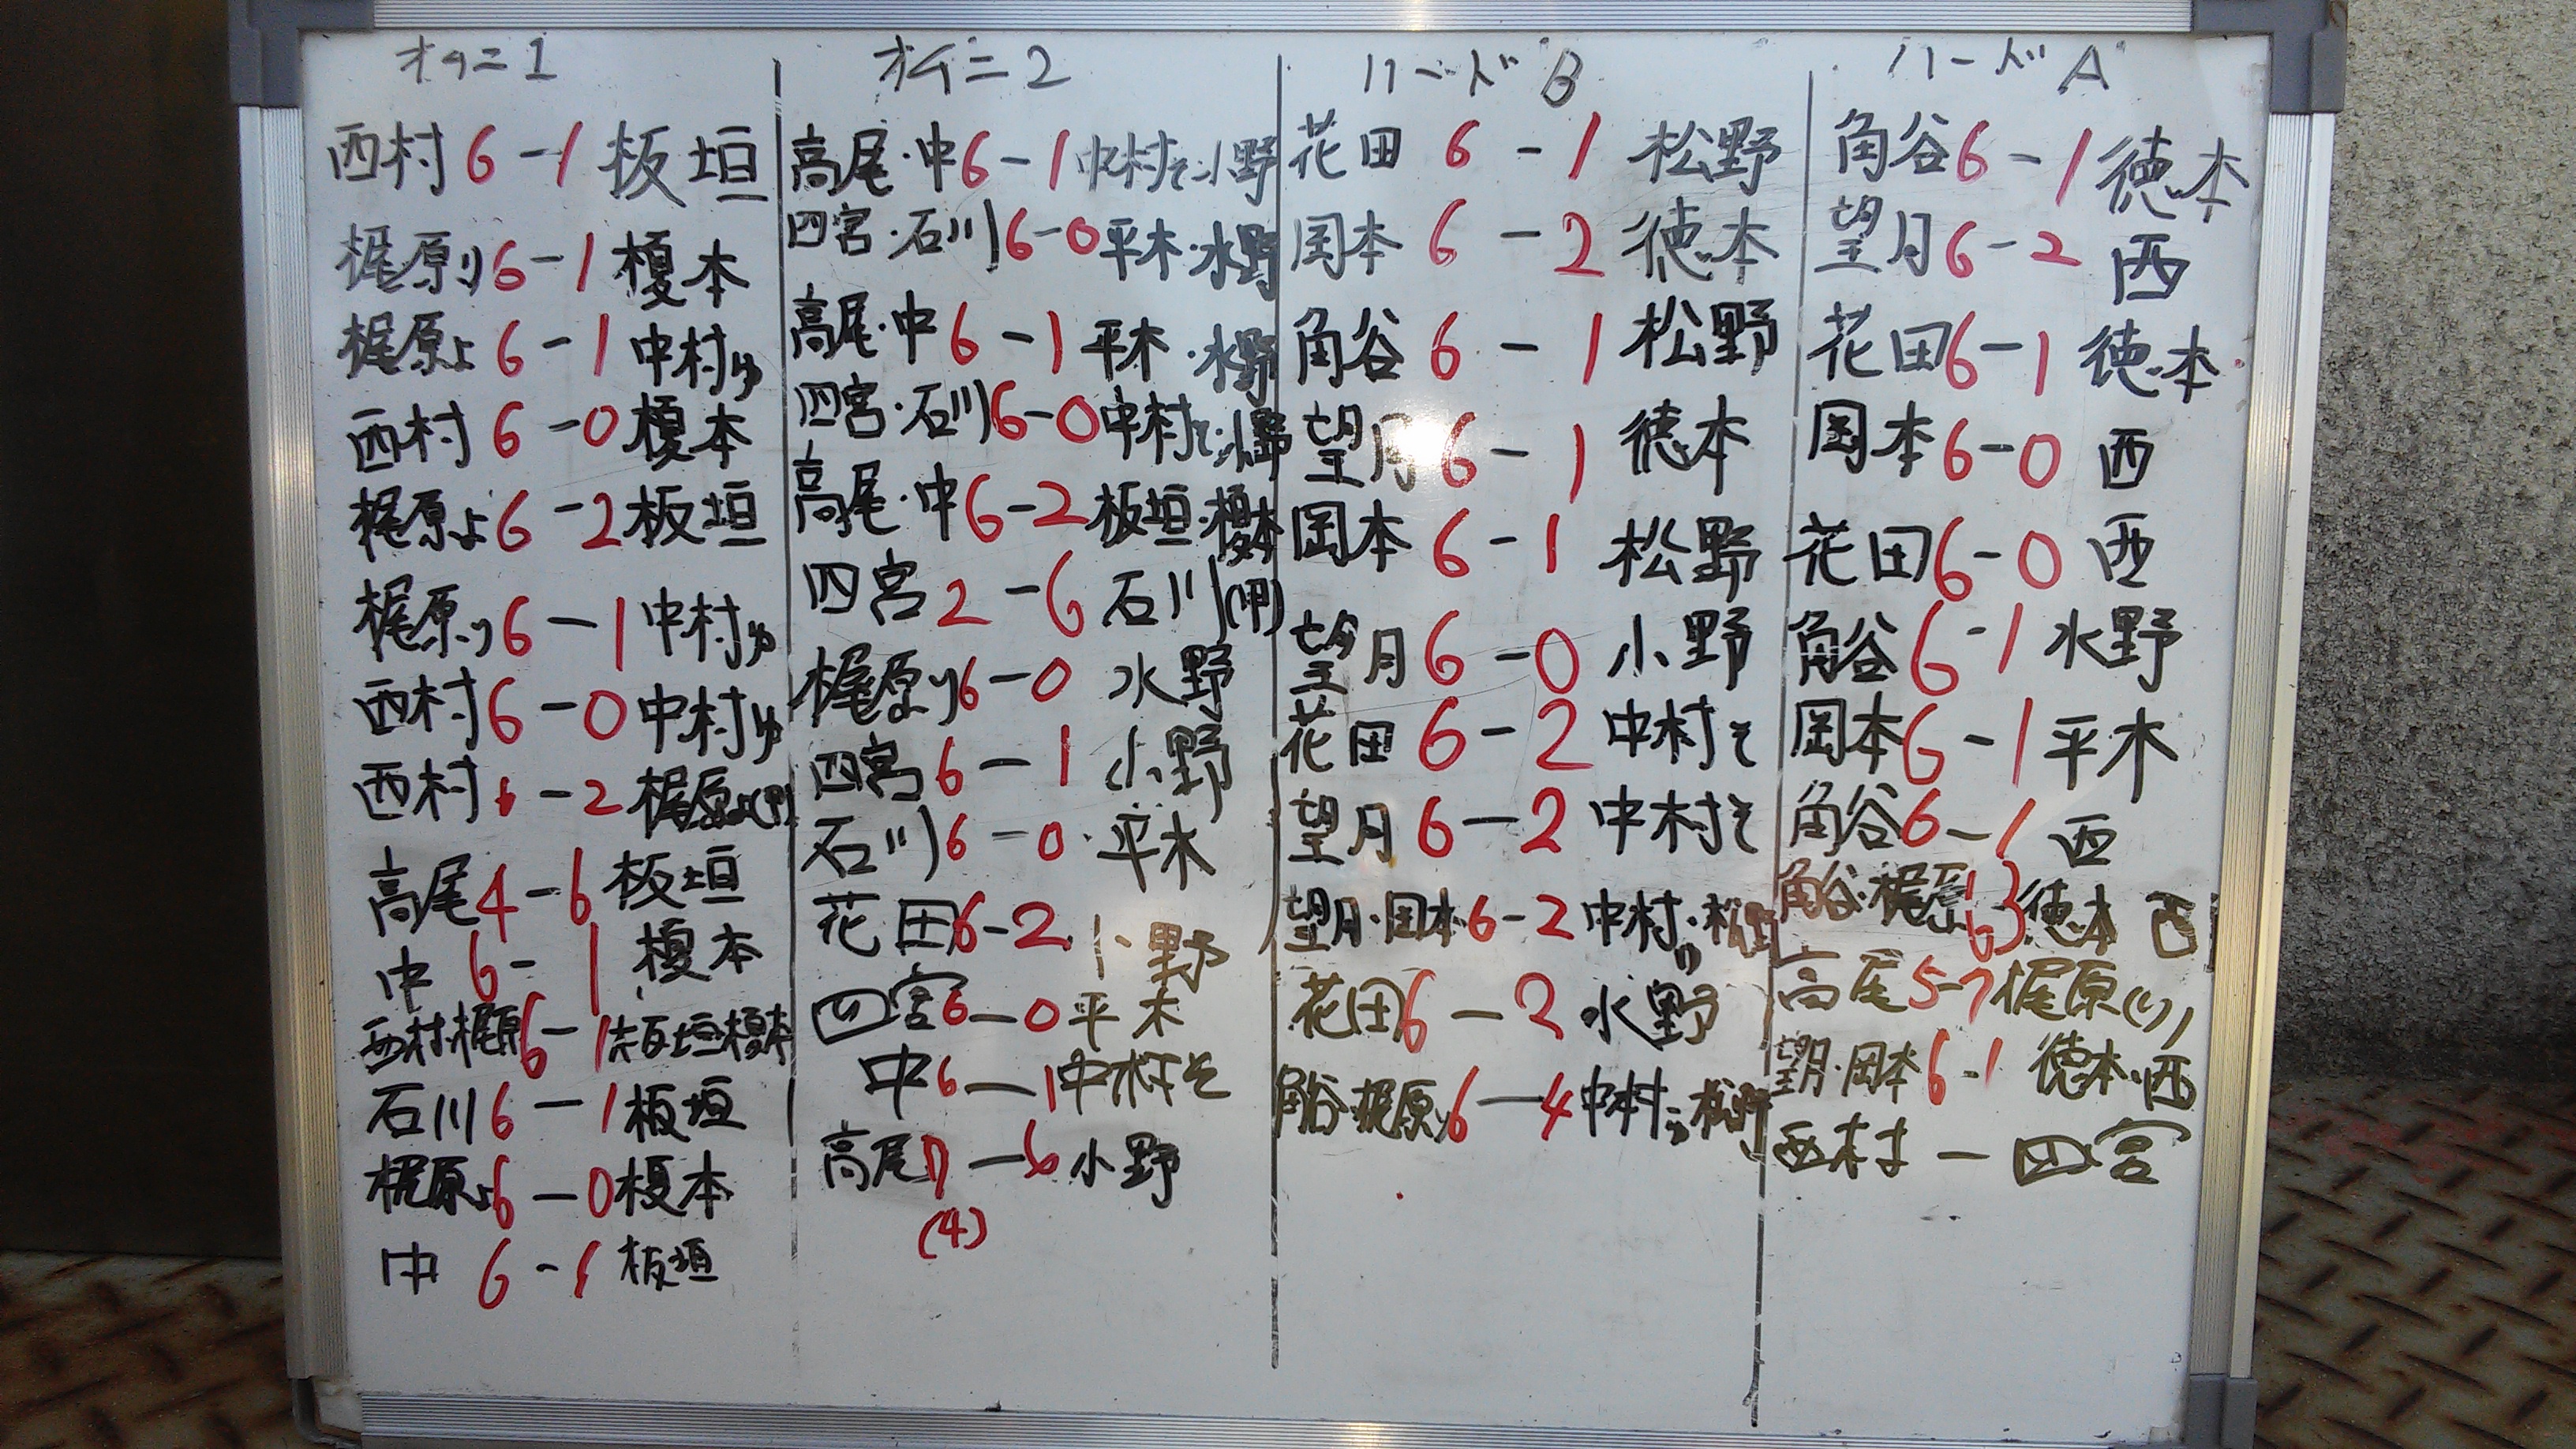 オムニ1
西村 6-1 板垣
梶原り 6-1 榎本
梶原よ 6-1 中村ゆ
西村 6-0 榎本
梶原よ 6-2 板垣
梶原り 6-1 中村ゆ
西村 6-0 中村ゆ
西村 6-2 梶原よ
高尾 4-6 板垣
中 6-1 榎本
西村・梶原 6-1 板垣・榎本
石川 6-1 板垣
梶原よ 6-0 榎本
中 6-1 板垣
オムニ2
高尾・中 6-1 中村そ・小野
四宮・石川 6-0 平木・水野
高尾・中 6-1 平木・水野
四宮・石川 6-0 中村そ・小野
高尾・中 6-2 板垣・榎本
四宮 2-6 石川
梶原り 6-0 水野
四宮 6-1 小野
石川 6-0 平木
花田 6-2 小野
四宮 6-0 平木
中 6-1 中村そ
高尾 7-6 小野
(4)
ハードB
花田 6-1 松野
岡本 6-2 徳本
角谷 6-1 松野
望月 6-1 徳本
岡本 6-1 松野
望月 6-0 小野
花田 6-2 中村そ
望月 6-2 中村そ
望月・岡本 6-2 中村・松野
花田 6-2 水野
角谷・梶原り 6-4 中村・松野
ハードA
角谷 6-1 徳本
望月 6-2 西
花田 6-1 徳本
岡本 6-0 西
花田 6-0 西
角谷 6-1 水野
岡本 6-1 平木
角谷 6-1 西
角谷・梶原 63 徳本 西
高尾 5-7 梶原(り)
望月・岡本 6-1 徳本・西
西村 - 四宮